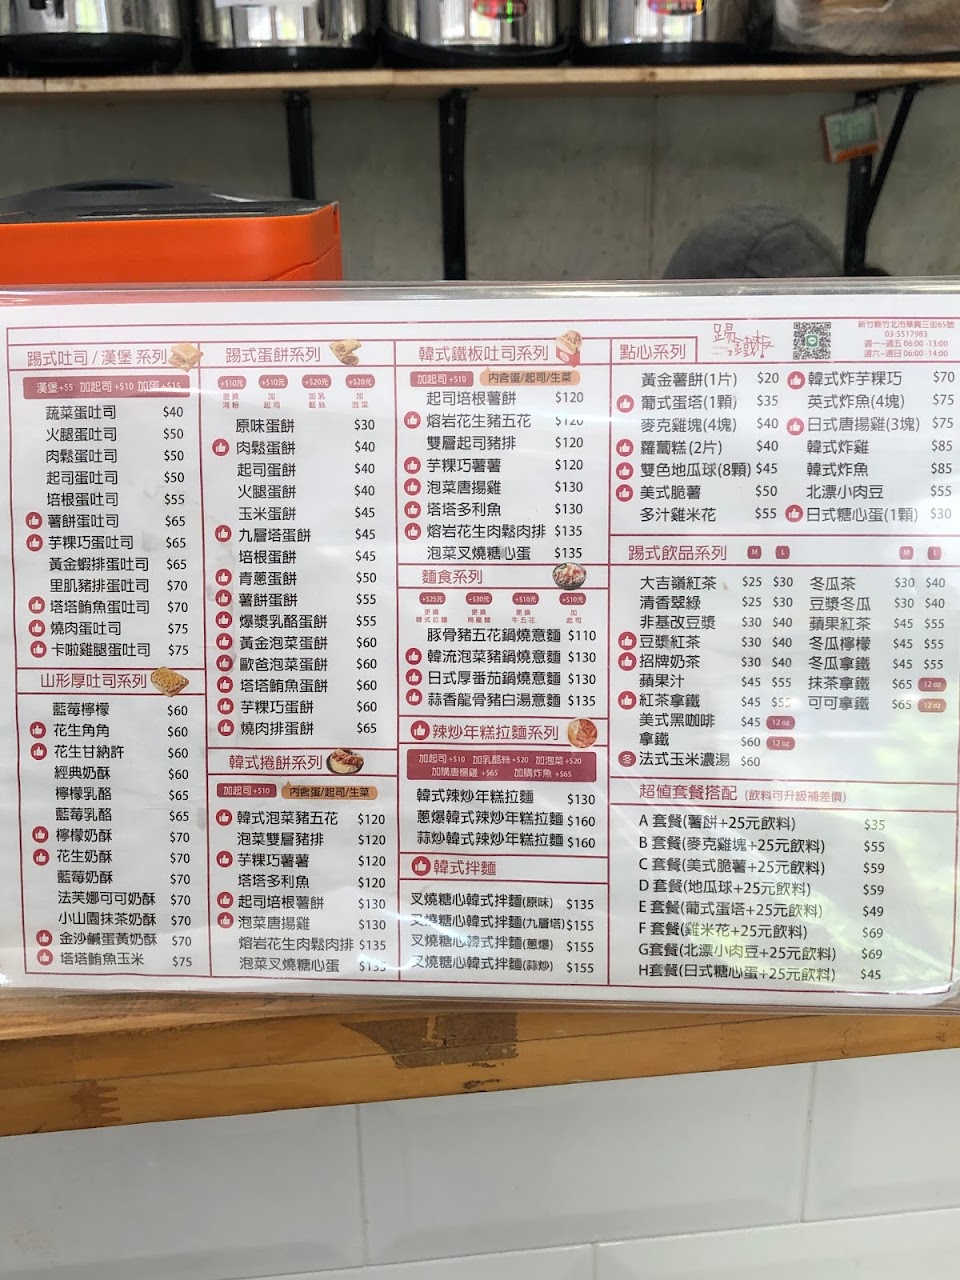 踢式吐司/漢堡 系列
漢堡+$5 加起司+$10 加蛋+$15
蔬菜蛋吐司 $40
火腿蛋吐司 $50
肉鬆蛋吐司 $50
起司蛋吐司 $50
培根蛋吐司 $55
薯餅蛋吐司 $65
芋粿巧蛋吐司 $65
黃金蝦排蛋吐司 $65
里肌豬排蛋吐司 $70
塔塔鮪魚蛋吐司 $70
燒肉蛋吐司 $75
卡啦雞腿蛋吐司 $75
山形厚吐司系列
藍莓檸檬 $60
花生角角 $60
花生甘納許 $60
經典奶酥 $60
檸檬乳酪 $65
藍莓乳酪 $65
檸檬奶酥 $70
花生奶酥 $70
藍莓奶酥 $70
法芙娜可可奶酥 $70
小山園抹茶奶酥 $70
金沙鹹蛋黃奶酥 $70
塔塔鮪魚玉米 $75
踢式蛋餅系列
+$10元 +$10元 +$20元 +$20元
更換河粉 加起司 加乳酪絲 加泡菜
原味蛋餅 $30
肉鬆蛋餅 $40
起司蛋餅 $40
火腿蛋餅 $40
玉米蛋餅 $45
九層塔蛋餅 $45
培根蛋餅 $45
青蔥蛋餅 $50
薯餅蛋餅 $55
爆漿乳酪蛋餅 $55
黃金泡菜蛋餅 $60
歐爸泡菜蛋餅 $60
塔塔鮪魚蛋餅 $60
芋粿巧蛋餅 $60
燒肉排蛋餅 $65
韓式捲餅系列
加起司+$10 內含蛋/起司/生菜
韓式泡菜豬五花 $120
泡菜雙層豬排 $120
芋粿巧薯薯 $120
塔塔多利魚 $120
起司培根薯餅 $130
泡菜唐揚雞 $130
熔岩花生肉鬆肉排 $135
泡菜叉燒糖心蛋 $135
韓式鐵板吐司系列
加起司+$10 內含蛋/起司/生菜
起司培根薯餅 $120
熔岩花生豬五花 $120
雙層起司豬排 $120
芋粿巧薯薯 $120
泡菜唐揚雞 $130
塔塔多利魚 $130
熔岩花生肉鬆肉排 $135
泡菜叉燒糖心蛋 $135
麵食系列
+$25元 +$30元 +$10元 +$10元
更換韓式拉麵 更換烏龍麵 更換牛五花 加起司
豚骨豬五花鍋燒意麵 $110
韓流泡菜豬鍋燒意麵 $130
日式厚番茄鍋燒意麵 $130
蒜香龍骨豬白湯意麵 $135
辣炒年糕拉麵系列
加起司+$10 加乳酪絲+$20 加泡菜+$20
加購唐楊雞+$65 加購炸魚+$65
韓式辣炒年糕拉麵 $130
蔥爆韓式辣炒年糕拉麵 $160
蒜炒韓式辣炒年糕拉麵 $160
韓式拌麵
叉燒糖心韓式拌麵(原味) $135
叉燒糖心韓式拌麵(九層塔) $155
叉燒糖心韓式拌麵(蔥爆) $155
叉燒糖心韓式拌麵(蒜炒) $155
點心系列
踢鐵板
新竹縣竹北市華興三街65號
03-5517983
週一~週五 06:00 -13:00
週六~週日 06:00 -14:00
黃金薯餅(1片) $20
葡式蛋塔(1顆) $35
麥克雞塊(4塊) $40
蘿蔔糕(2片) $40
雙色地瓜球(8顆) $45
美式脆薯 $50
多汁雞米花 $55
韓式炸芋粿巧 $70
英式炸魚(4塊) $75
日式唐揚雞(3塊) $75
韓式炸雞 $85
韓式炸魚 $85
北漂小肉豆 $55
日式糖心蛋(1顆) $30
踢式飲品系列 M L M L
大吉嶺紅茶 $25 $30
清香翠綠 $25 $30
非基改豆漿 $30 $40
豆漿紅茶 $30 $40
招牌奶茶 $30 $40
蘋果汁 $45 $55
紅茶拿鐵 $45 $55
美式黑咖啡 $45 12 oz
拿鐵 $60 12 oz
冬 法式玉米濃湯 $60
冬瓜茶 $30 $40
豆漿冬瓜 $30 $40
蘋果紅茶 $45 $55
冬瓜檸檬 $45 $55
冬瓜拿鐵 $45 $55
抹茶拿鐵 $65 12 oz
可可拿鐵 $65 12 oz
超值套餐搭配 (飲料可升級補差價)
A 套餐(薯餅+25元飲料) $35
B 套餐(麥克雞塊+25元飲料) $55
C 套餐(美式脆薯+25元飲料) $59
D 套餐(地瓜球+25元飲料) $59
E 套餐(葡式蛋塔+25元飲料) $49
F 套餐(雞米花+25元飲料) $69
G套餐(北漂小肉豆+25元飲料) $69
H套餐(日式糖心蛋+25元飲料) $45